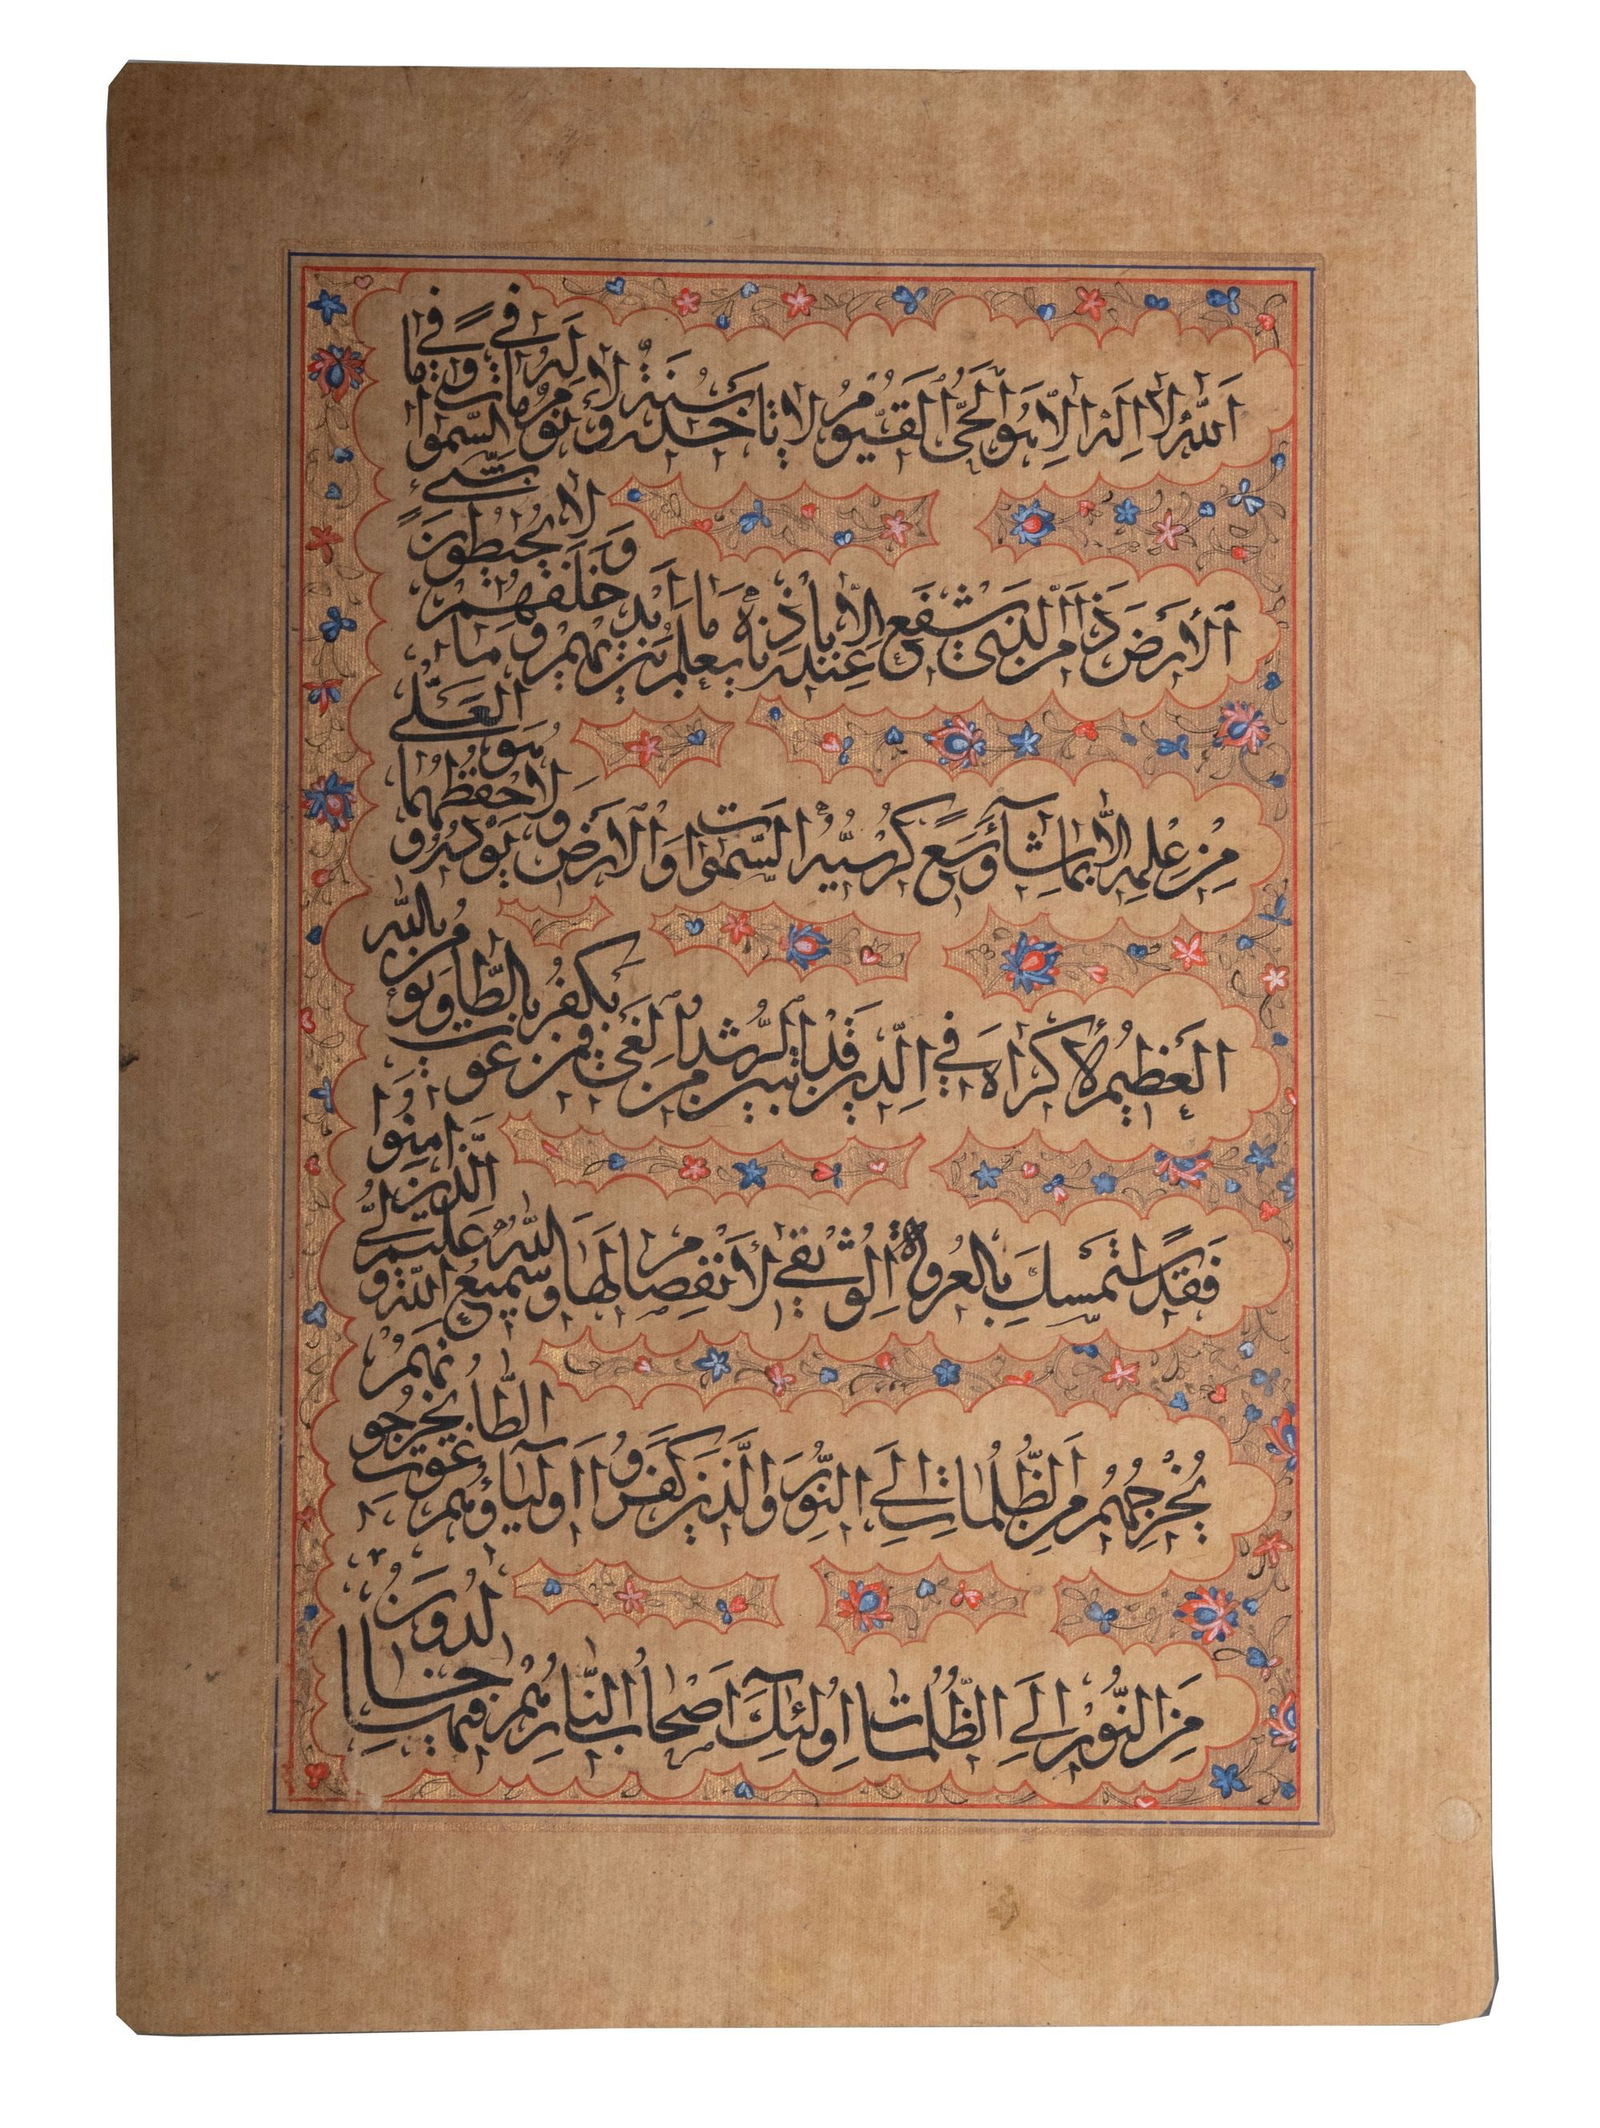 اللهُ لا اِلهَ اِلّا هُوَ الْحَىُّ الْقَيُّومُ لا تاخذه سنة ولا نوم له ما في السموات وما في
الارض من ذا الذي يشفع عنده الا باذنه يعلم ما بين ايديهم وما خلفهم ولا يحيطون بشي
من علمه الا بماشآء وسع كرسيه السموات والارض ولا يوده حفظهما وهو العلي
العظيم لا اكراه في الدين قد تبين الرشد من الغي فمن يكفر بالطاغوت ويومن بالله
فقد استمسك بالعروة الوثقي لا انفصام لها والله سميع عليم الله ولي الذين امنوا
يخرجهم من الظلمات الي النور والذين كفروا اوليآؤهم الطاغوت يخرجونهم
من النور الي الظلمات اولئك اصحاب النار هم فيها خالدون